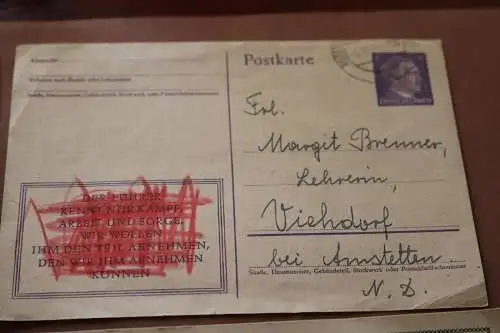 Postkarte
Frl.
Margit Brenner,
Lehrerin,
Viehdorf
bei Amstetten.
N. D.
Straße, Hausnummer, Gebäudeteil, Stockwerk oder Postschließfachnummer
Absender:
Wohnort, auch Zustell- oder Leitpostamt
Straße, Hausnummer, Gebäudeteil, Stockwerk oder Postschließfachnummer
DER FÜHRER
KENNT NUR KAMPF,
ARBEIT UND SORGE.
WIR WOLLEN
IHM DEN TEIL ABNEHMEN,
DEN WIR IHM ABNEHMEN
KÖNNEN